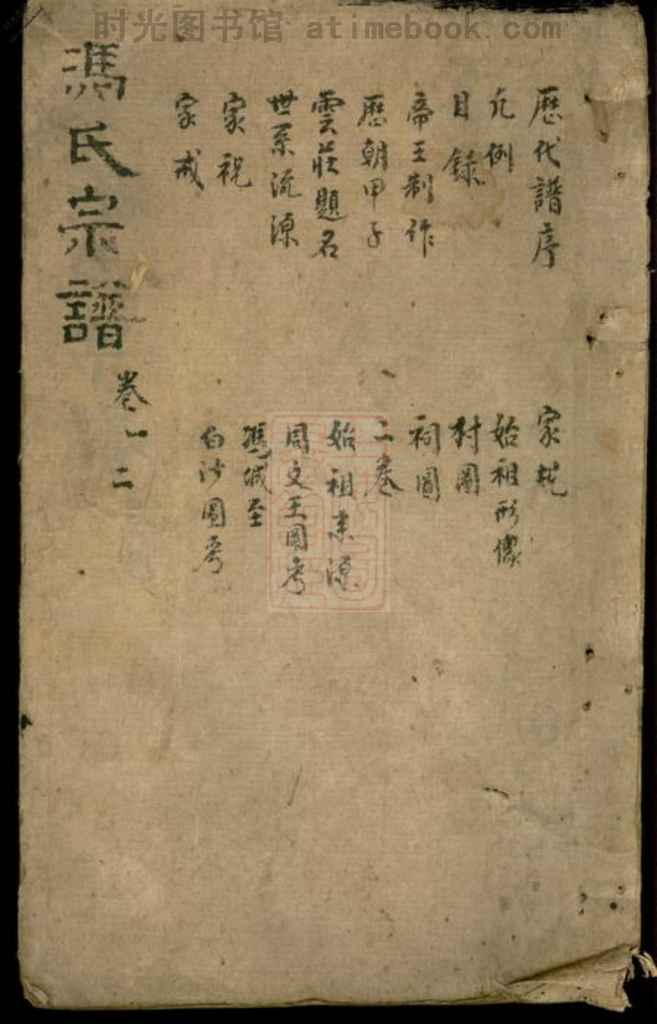 时光图书馆 atimebook.com
歷代譜序
凡例
目錄
帝王制作
歷朝甲子
雲莊題名
世系流源
家祝
家戒
家規
始祖形像
村圖
祠圖
二卷
始祖来源
周文王圖考
馮城至
白沙圖考
馮氏宗譜
卷一二